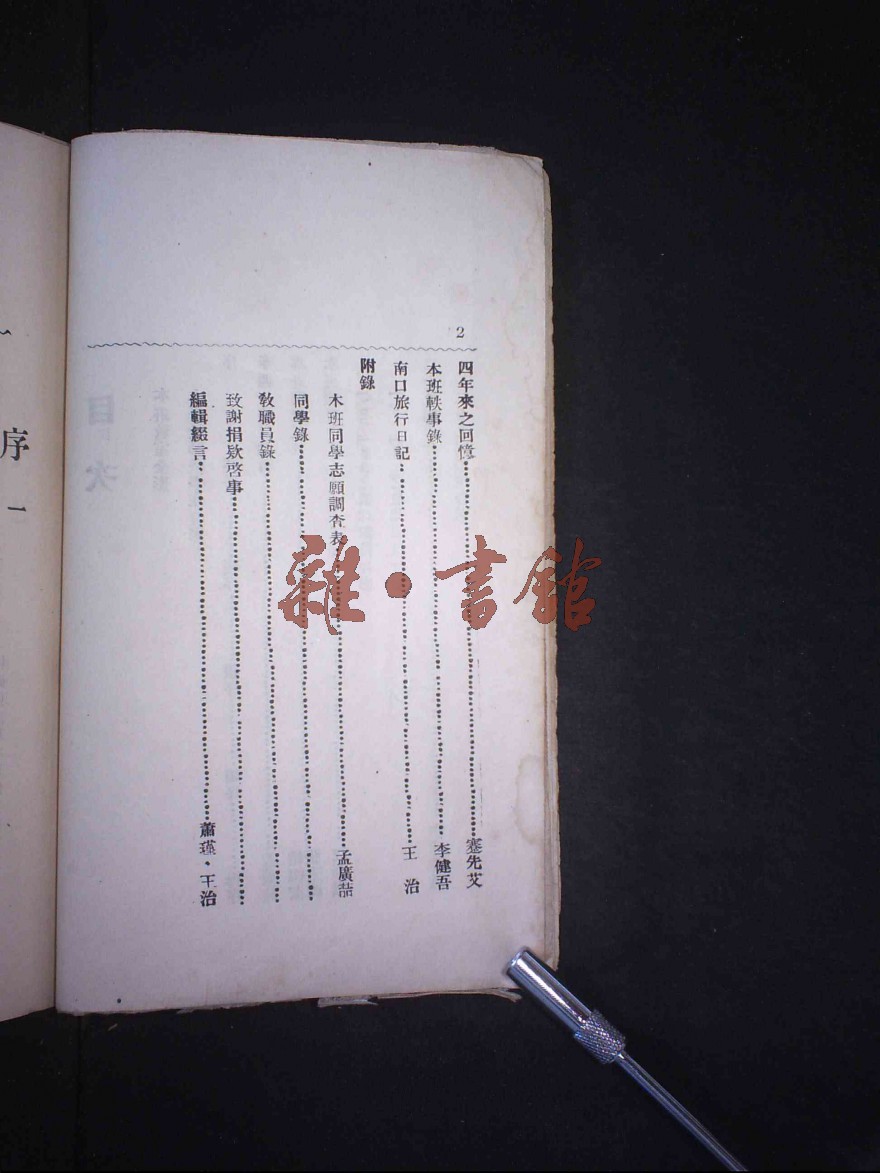 2
四年來之回憶 蹇先艾
本班軼事錄 李健吾
南口旅行日記 王治
附錄
本班同學志願調查表 孟廣喆
同學錄
敎職員錄
致謝捐欵啓事
編輯綴言 蕭瑛・王治
序
一
雜・書館